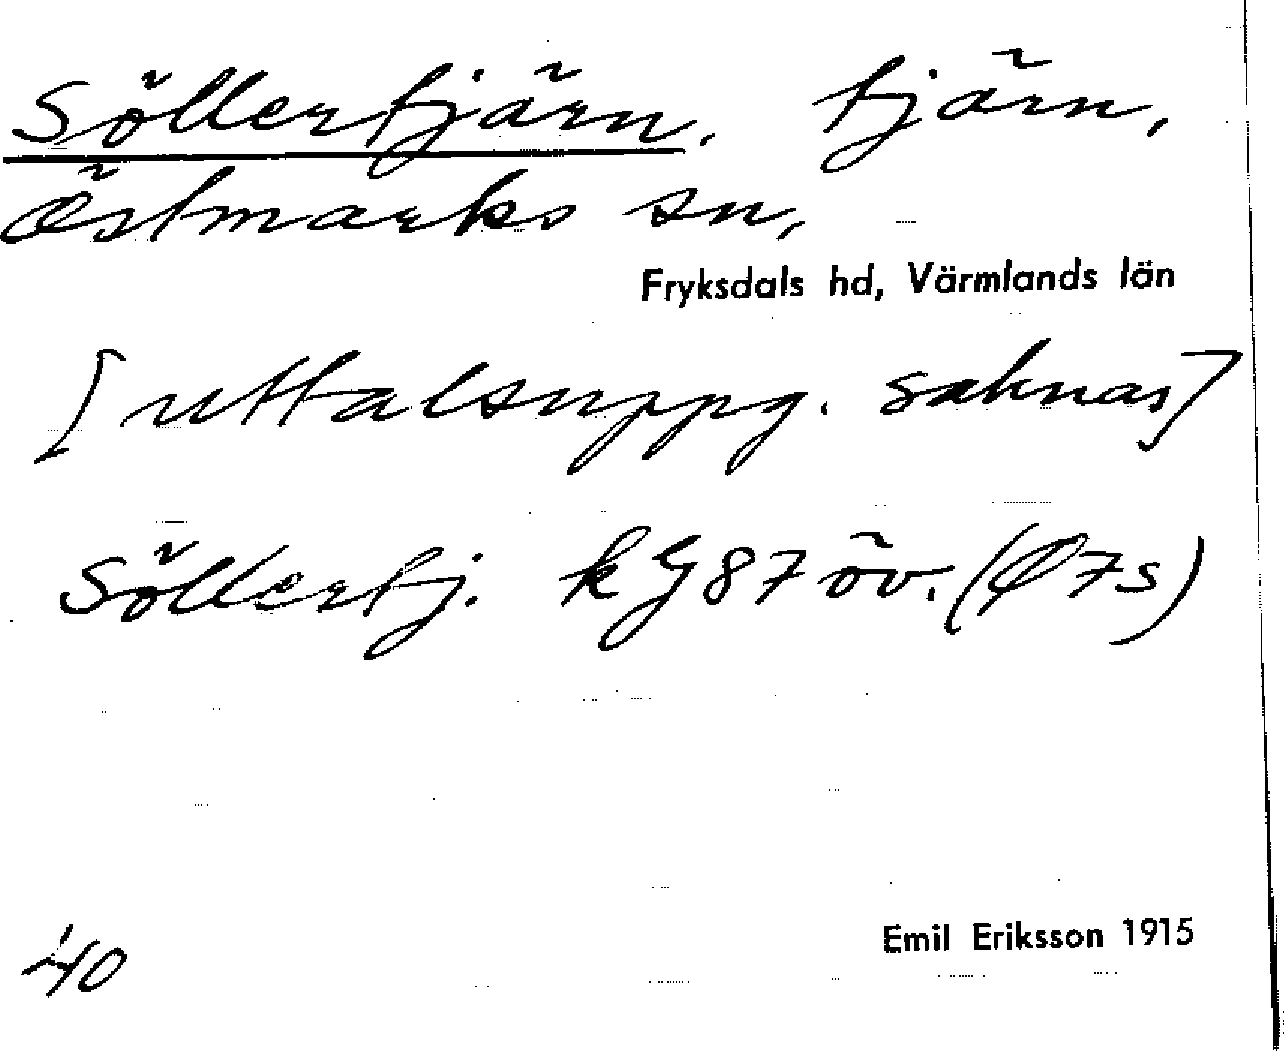 Söllertjärn. tjärn,
Östmarks sn,
Fryksdals hd, Värmlands län
[uttalsuppg. saknas]
Söllertj. kG87öv. (Ø7s)
40
Emil Eriksson 1915